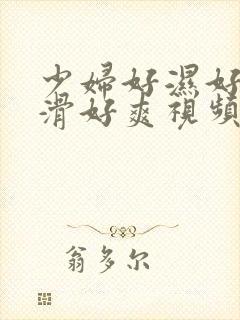 少婦好濕好
滑好爽視頻
翁多尔